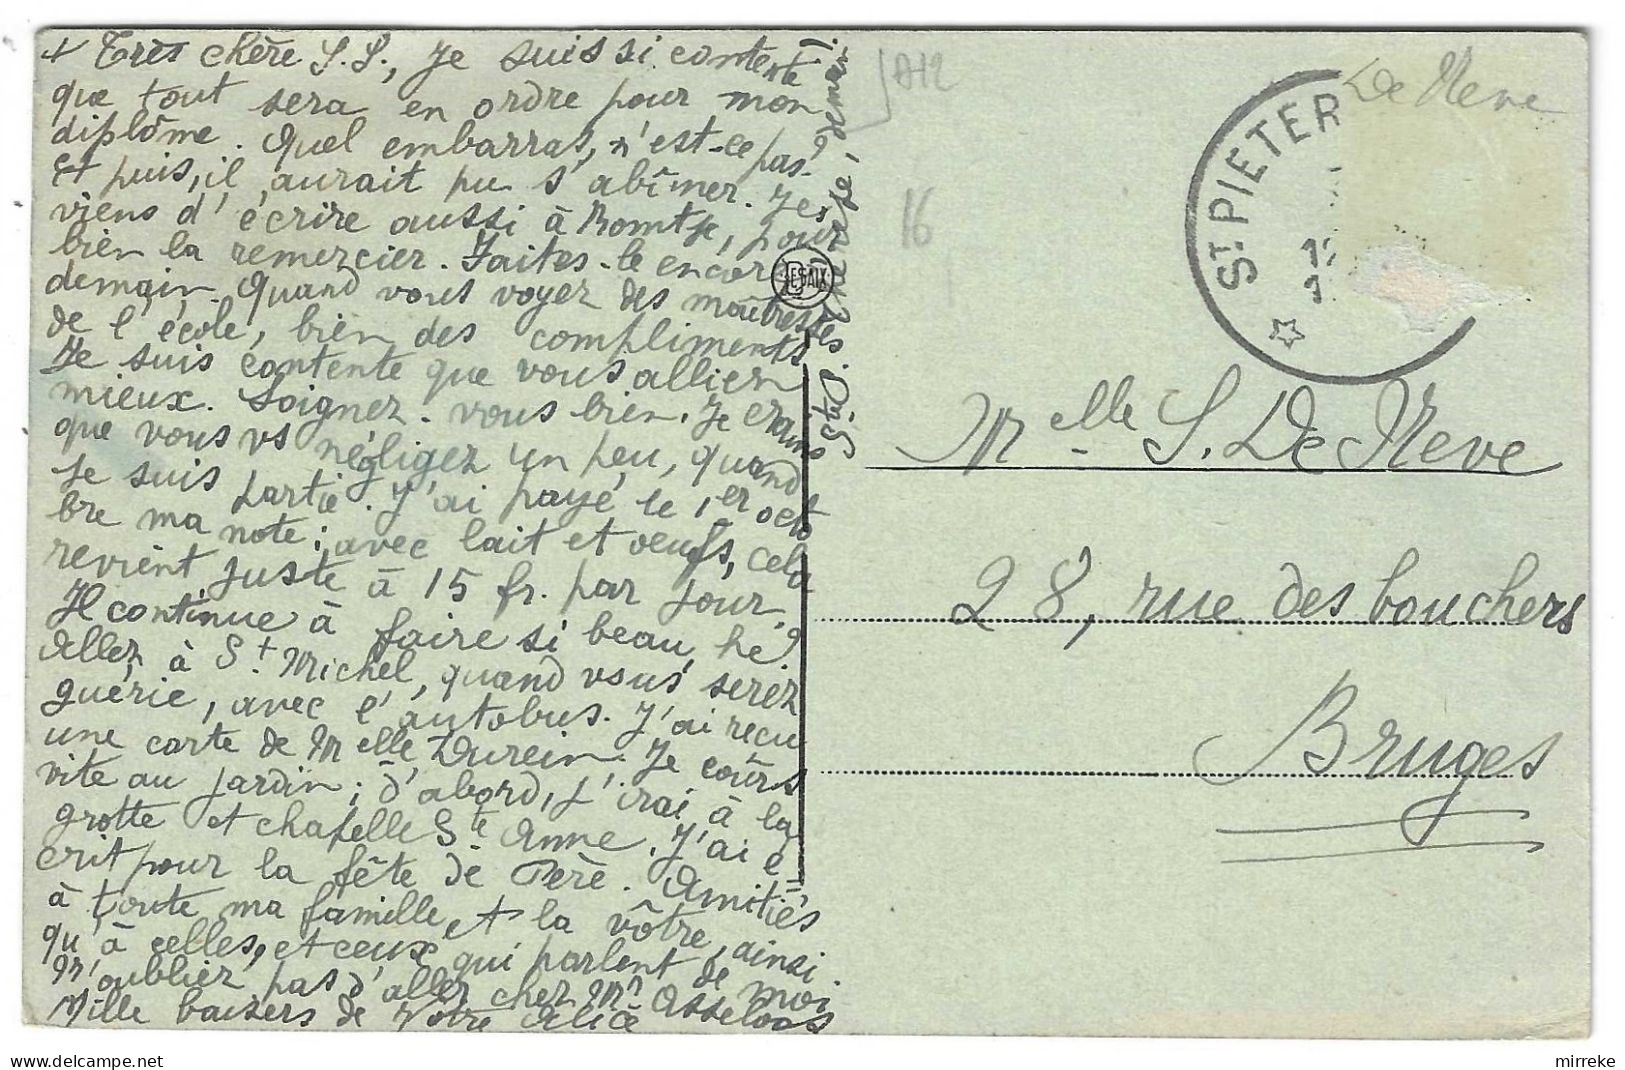 + Très chère S.S., Je suis si contente
que tout sera en ordre pour mon
diplôme. Quel embarras, n'est-ce pas?
Et puis, il aurait pu s'abîmer. Je
viens d'écrire aussi à Romtje, pour
bien la remercier. Faites-le encore
demain. Quand vous voyez des maîtresses
de l'école, bien des compliments
Je suis contente que vous alliez
mieux. Soignez-vous bien. Je crains
que vous vs négligez un peu, quand
je suis partie. J'ai payé le 1er octo
bre ma note: avec lait et oeufs, cela
revient juste à 15 fr. par jour.
Il continue à faire si beau, hé?
Allez à St Michel, quand vous serez
guérie, avec l'autobus. J'ai reçu
une carte de Melle Durein. Je cours
vite au jardin; d'abord, j'irai à la
grotte et chapelle Ste Anne. J'ai é=
crit pour la fête de Père. Amitiés
à toute ma famille et la vôtre, ainsi
qu'à celles, et ceux qui parlent de moi
N'oubliez pas d'aller chez Mr
Mille baisers de Votre Alice
Ste Thérèse, demain.
DESAIX
A12
16
De Neve
ST. PIETER
Melle S. De Neve
28, rue des bouchers
Bruges
mirreke